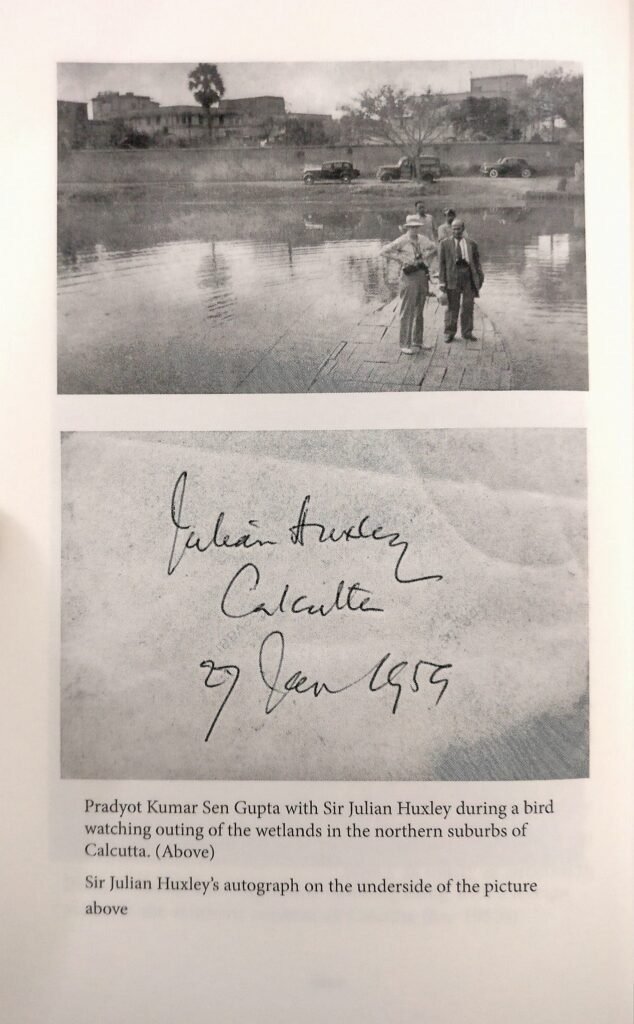 Julian Huxley
Calcutta
27 Jan 1959
Pradyot Kumar Sen Gupta with Sir Julian Huxley during a bird
watching outing of the wetlands in the northern suburbs of
Calcutta. (Above)
Sir Julian Huxley’s autograph on the underside of the picture
above